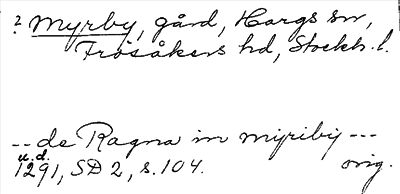 ? Myrby, gård, Hargs sn,
Frösåkers hd, Stockh. l.
-- de Ragna in myribij ---
u.d.
1291, SD 2, s. 104. orig.